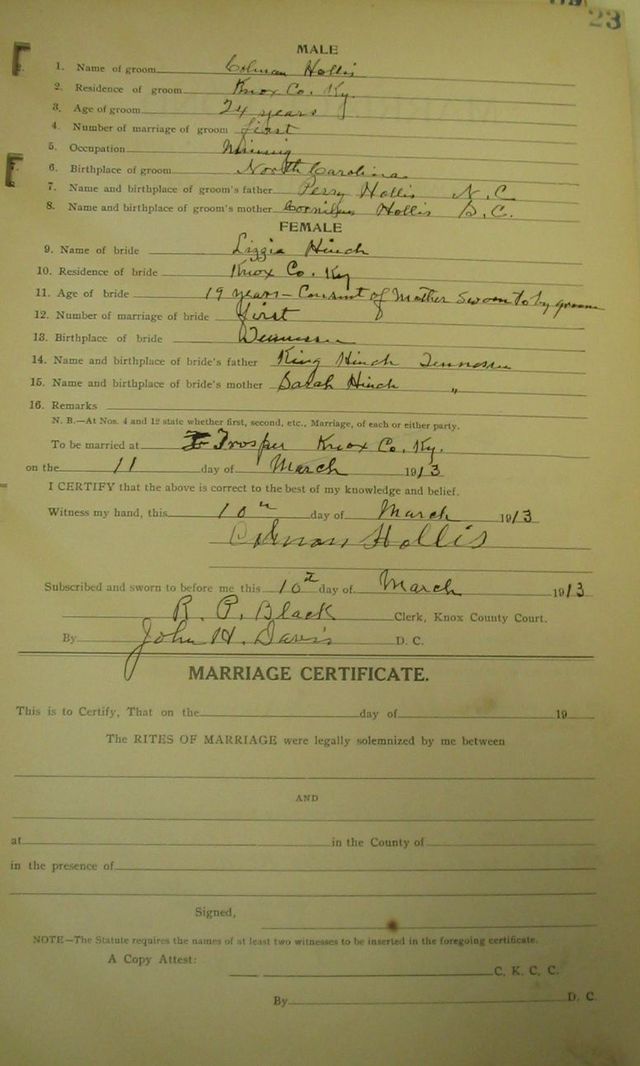 23
MALE
1. Name of groom Colman Hollis
2. Residence of groom Knox Co. Ky.
3. Age of groom 24 years
4. Number of marriage of groom first
5. Occupation Mining
6. Birthplace of groom North Carolina
7. Name and birthplace of groom's father Perry Hollis N. C.
8. Name and birthplace of groom's mother Hollis S. C.
FEMALE
9. Name of bride Lizzie Hinch
10. Residence of bride Knox Co. Ky
11. Age of bride 19 years – Consent of Mother Sworn to by groom
12. Number of marriage of bride first
13. Birthplace of bride Tennessee
14. Name and birthplace of bride's father King Hinch Tennessee
15. Name and birthplace of bride's mother Sarah Hinch "
16. Remarks
N. B.—At Nos. 4 and 12 state whether first, second, etc., Marriage, of each or either party.
To be married at Trosper Knox Co. Ky.
on the 11 day of March 1913
I CERTIFY that the above is correct to the best of my knowledge and belief.
Witness my hand, this 10th day of March 1913
Colman Hollis
Subscribed and sworn to before me this 10th day of March 1913
R. P. Black Clerk, Knox County Court.
By John H. Davis D. C.
MARRIAGE CERTIFICATE.
This is to Certify, That on the day of 19
The RITES OF MARRIAGE were legally solemnized by me between
AND
at in the County of
in the presence of
Signed,
NOTE—The Statute requires the names of at least two witnesses to be inserted in the foregoing certificate.
A Copy Attest:
C. K. C. C.
By D. C.